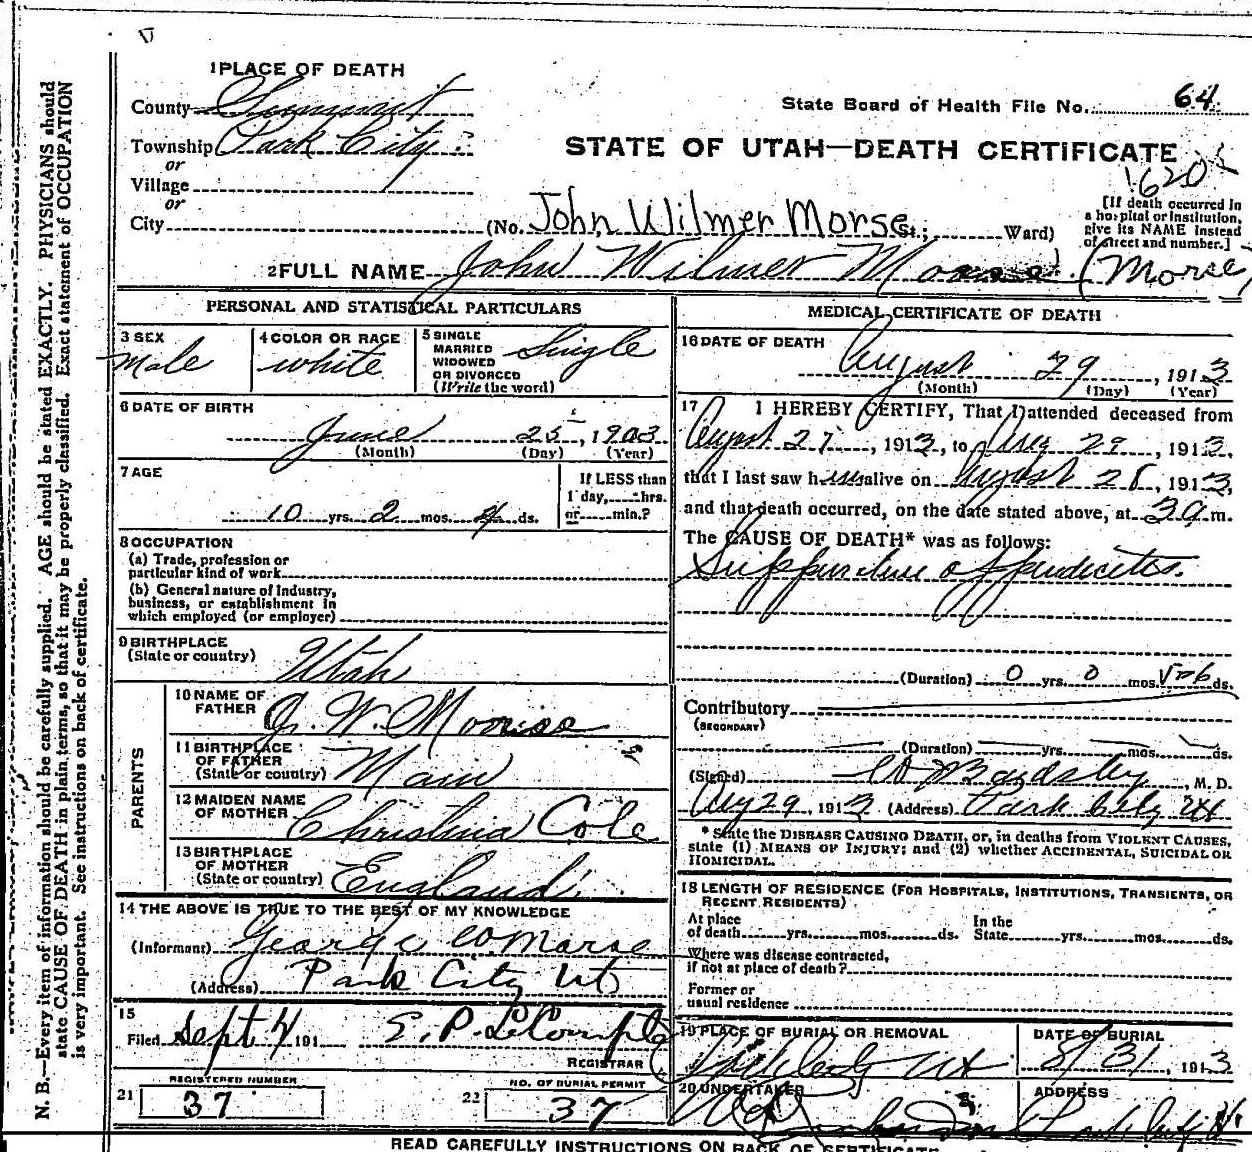 1 PLACE OF DEATH
County Summit
Township Park City
or
Village
or
City
State Board of Health File No. 64
STATE OF UTAH—DEATH CERTIFICATE
1620
(No. John Wilmer Morse St.; Ward)
[If death occurred in a hospital or institution, give its NAME instead of street and number.]
2 FULL NAME John Wilmer (Morse)
PERSONAL AND STATISTICAL PARTICULARS
3 SEX
Male
4 COLOR OR RACE
white
5 SINGLE
MARRIED
WIDOWED
OR DIVORCED
(Write the word)
Single
6 DATE OF BIRTH
June 25, 1903
(Month) (Day) (Year)
7 AGE
10 yrs. 2 mos. 4 ds.
If LESS than
1 day, hrs.
or min.?
8 OCCUPATION
(a) Trade, profession or
particular kind of work
(b) General nature of industry,
business, or establishment in
which employed (or employer)
9 BIRTHPLACE
(State or country)
Utah
PARENTS
10 NAME OF
FATHER
W.
11 BIRTHPLACE
OF FATHER
(State or country)
Main
12 MAIDEN NAME
OF MOTHER
Christina Cole
13 BIRTHPLACE
OF MOTHER
(State or country)
England
14 THE ABOVE IS TRUE TO THE BEST OF MY KNOWLEDGE
(Informant) George Morse
(Address) Park City Ut
15
Filed Sept 4 191 E. P. LeCompte
REGISTRAR
21 REGISTERED NUMBER
37
22 NO. OF BURIAL PERMIT
37
MEDICAL CERTIFICATE OF DEATH
16 DATE OF DEATH
August 29, 1913
(Month) (Day) (Year)
17 I HEREBY CERTIFY, That I attended deceased from
August 27, 1913, to Aug 29, 1913,
that I last saw him alive on August 28, 1913,
and that death occurred, on the date stated above, at 3 a m.
The CAUSE OF DEATH* was as follows:
Suppurative appendicitis.
(Duration) 0 yrs. 0 mos. 5 or 6 ds.
Contributory
(SECONDARY)
(Duration) yrs. mos. ds.
(Signed) Bardsley, M. D.
Aug 29, 1913 (Address) Park City Ut
* State the DISEASE CAUSING DEATH, or, in deaths from VIOLENT CAUSES,
state (1) MEANS OF INJURY; and (2) whether ACCIDENTAL, SUICIDAL OR
HOMICIDAL.
18 LENGTH OF RESIDENCE (FOR HOSPITALS, INSTITUTIONS, TRANSIENTS, OR
RECENT RESIDENTS)
At place
of death yrs. mos. ds.
In the
State yrs. mos. ds.
Where was disease contracted,
if not at place of death?
Former or
usual residence
19 PLACE OF BURIAL OR REMOVAL
Park City Ut
DATE OF BURIAL
8/31, 1913
20 UNDERTAKER
ADDRESS
Park City Ut
READ CAREFULLY INSTRUCTIONS ON BACK OF CERTIFICATE
N. B.—Every item of information should be carefully supplied. AGE should be stated EXACTLY. PHYSICIANS should
state CAUSE OF DEATH in plain terms, so that it may be properly classified. Exact statement of OCCUPATION
is very important. See instructions on back of certificate.